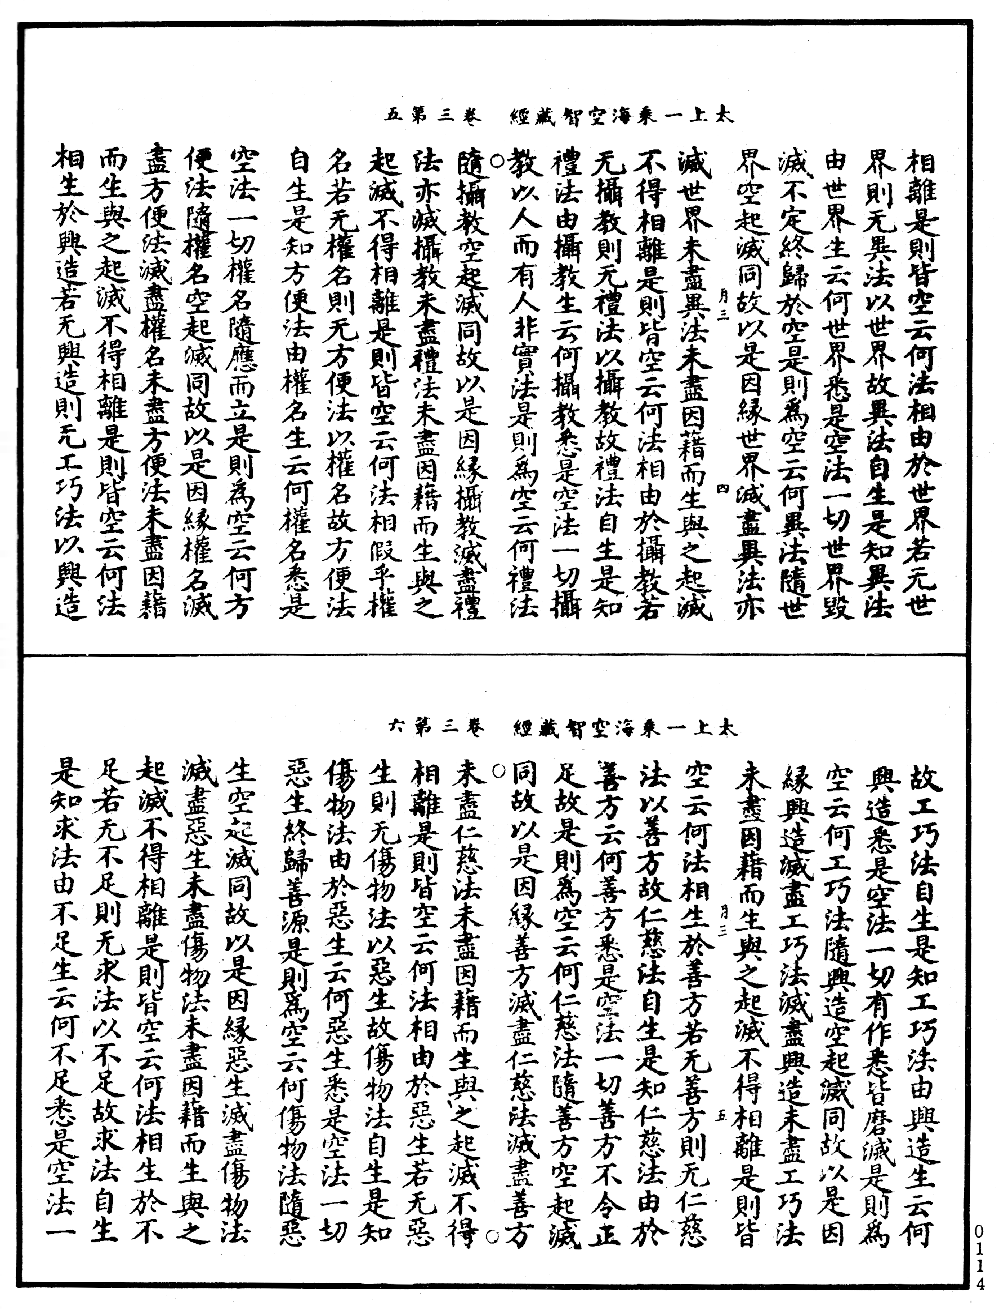 太上一乘海空智藏經　卷三第五
相離是則皆空云何法相由於世界若无世
界則无異法以世界故異法自生是知異法
由世界生云何世界悉是空法一切世界毀
滅不定終歸於空是則為空云何異法隨世
界空起滅同故以是因緣世界滅盡異法亦
月三　四
滅世界未盡異法未盡因藉而生與之起滅
不得相離是則皆空云何法相由於攝教若
无攝教則无禮法以攝教故禮法自生是知
禮法由攝教生云何攝教悉是空法一切攝
教以人而有人非實法是則為空云何禮法
隨攝教空起滅同故以是因緣攝教滅盡禮
法亦滅攝教未盡禮法未盡因藉而生與之
起滅不得相離是則皆空云何法相假乎權
名若无權名則无方便法以權名故方便法
自生是知方便法由權名生云何權名悉是
空法一切權名隨應而立是則為空云何方
便法隨權名空起滅同故以是因緣權名滅
盡方便法滅盡權名未盡方便法未盡因藉
而生與之起滅不得相離是則皆空云何法
相生於興造若无興造則无工巧法以興造
太上一乘海空智藏經　卷三第六
故工巧法自生是知工巧法由興造生云何
興造悉是空法一切有作悉皆磨滅是則為
空云何工巧法隨興造空起滅同故以是因
緣興造滅盡工巧法滅盡興造未盡工巧法
未盡因藉而生與之起滅不得相離是則皆
月三　五
空云何法相生於善方若无善方則无仁慈
法以善方故仁慈法自生是知仁慈法由於
善方云何善方悉是空法一切善方不令正
足故是則為空云何仁慈法隨善方空起滅
同故以是因緣善方滅盡仁慈法滅盡善方
未盡仁慈法未盡因藉而生與之起滅不得
相離是則皆空云何法相由於惡生若无惡
生則无傷物法以惡生故傷物法自生是知
傷物法由於惡生云何惡生悉是空法一切
惡生終歸善源是則為空云何傷物法隨惡
生空起滅同故以是因緣惡生滅盡傷物法
滅盡惡生未盡傷物法未盡因藉而生與之
起滅不得相離是則皆空云何法相生於不
足若无不足則无求法以不足故求法自生
是知求法由不足生云何不足悉是空法一
0114